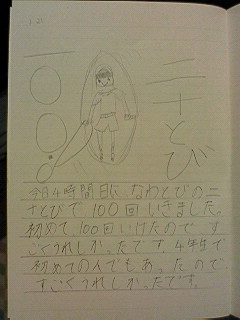 二十とび
今日4時間目に、なわとびの二
十とびで100回いきました。
初めて100回いけたので、す
ごくうれしかったです。4年生で
初めての人でもあったので
すごくうれしかったです。